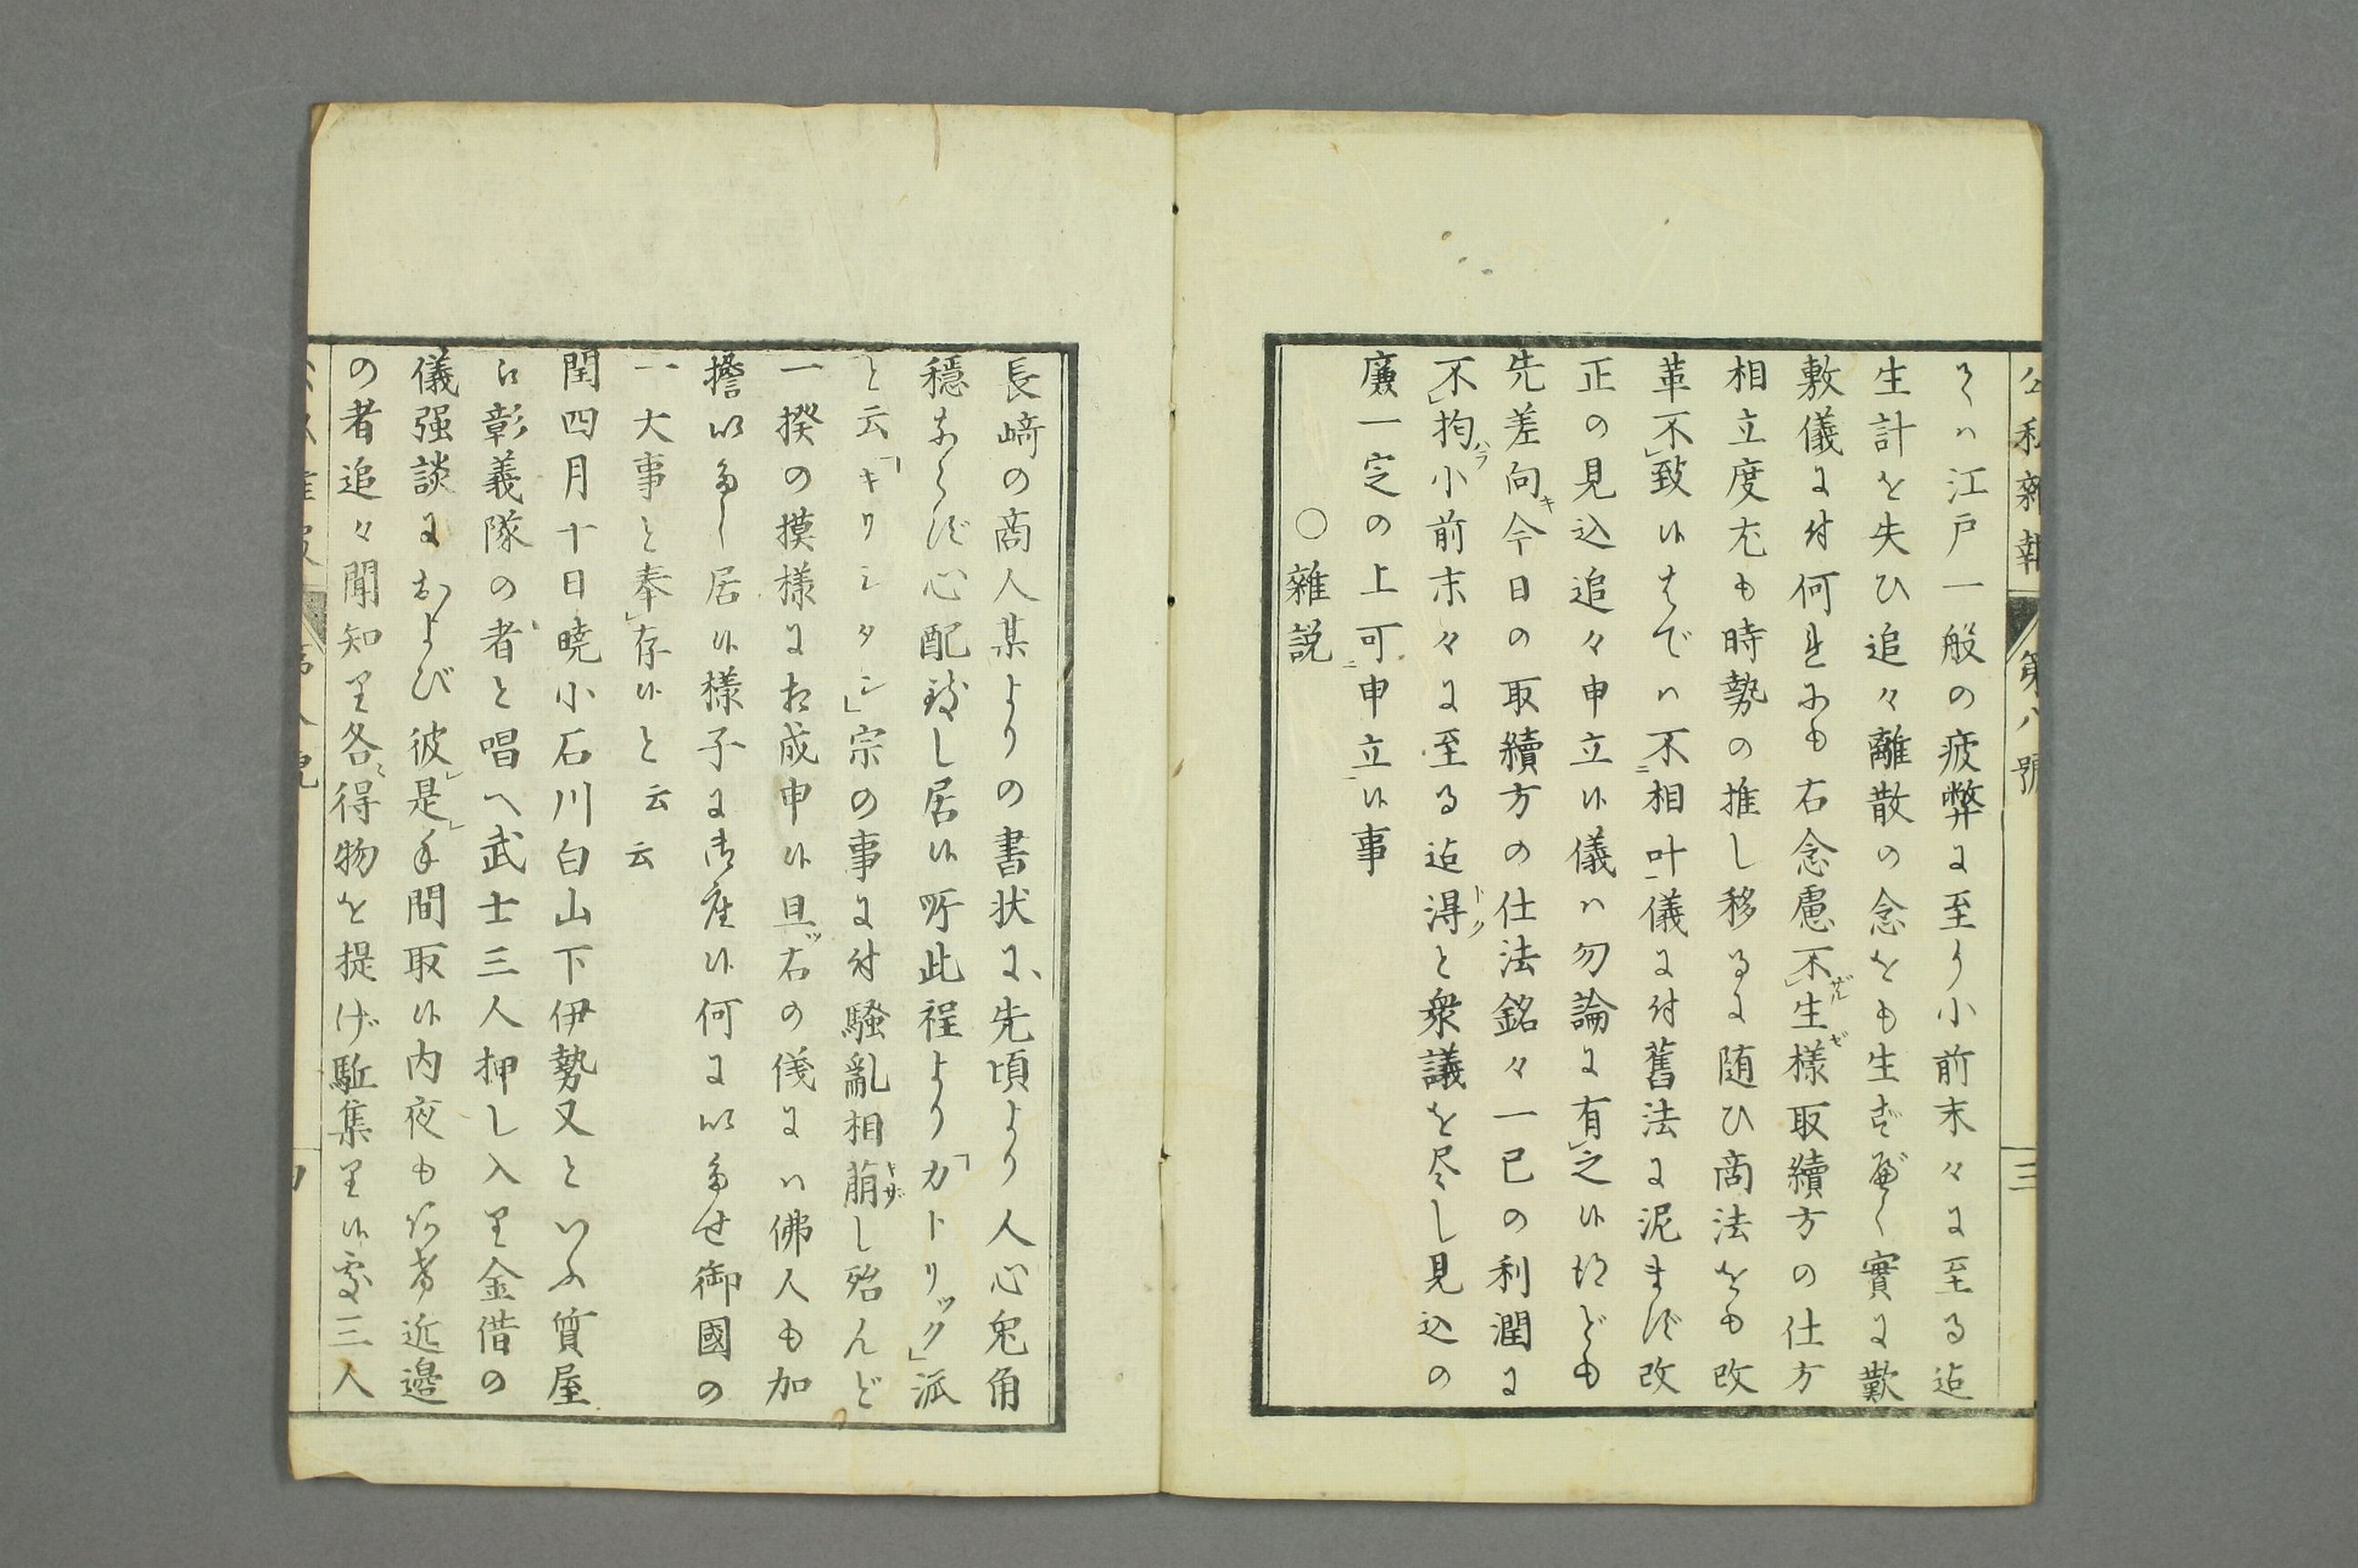 公私雜報 第八號 三
てハ江戸一般の疲弊に至り小前末々に至る迄
生計を失ひ追々離散の念をも生ずべく實に歎
敷儀に付何れにも右念慮不生様取續方の仕方
相立度尤も時勢の推し移るに随ひ商法をも改
革不致候はでハ不相叶儀に付舊法に泥まず改
正の見込追々申立候儀ハ勿論に有之候得ども
先差向今日の取續方の仕法銘々一已の利潤に
不拘小前末々に至る迄得と衆議を尽し見込の
廉一定の上可申立候事
○雜説
長﨑の商人某よりの書状に先頃より人心兎角
穏ならず心配致し居候所此程より「カトリック」派
と云「キリシタン」宗の事に付騒亂相萠し殆んど
一揆の摸様に相成申候且右の儀にハ佛人も加
擔いたし居候様子に御座候何にいたせ御國の
一大事と奉存候と云云
閏四月十日曉小石川白山下伊勢又といふ質屋
に彰義隊の者と唱へ武士三人押し入り金借の
儀强談におよび彼是手間取候内夜も明ケ近邉
の者追々聞知り各得物を提げ駈集り候処三人